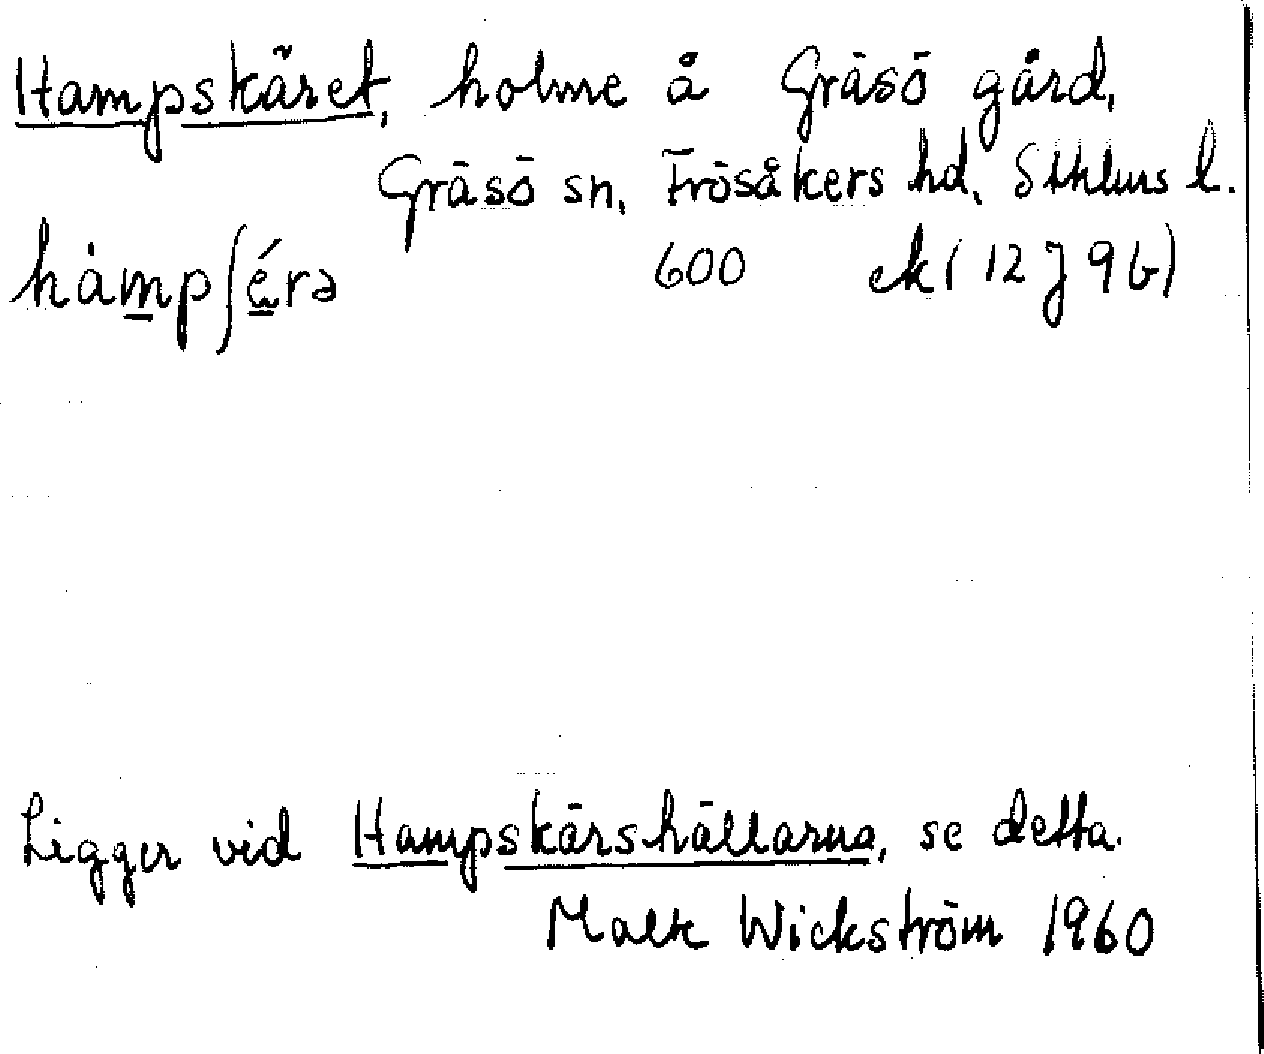 Hampskäret, holme å Gräsö gård,
Gräsö sn, Frösåkers hd, Sthlms l.
hàmpʃéra̱ 600 ek (12 J 9 b)
Ligger vid Hampskärshällarna, se detta.
Wickström 1960